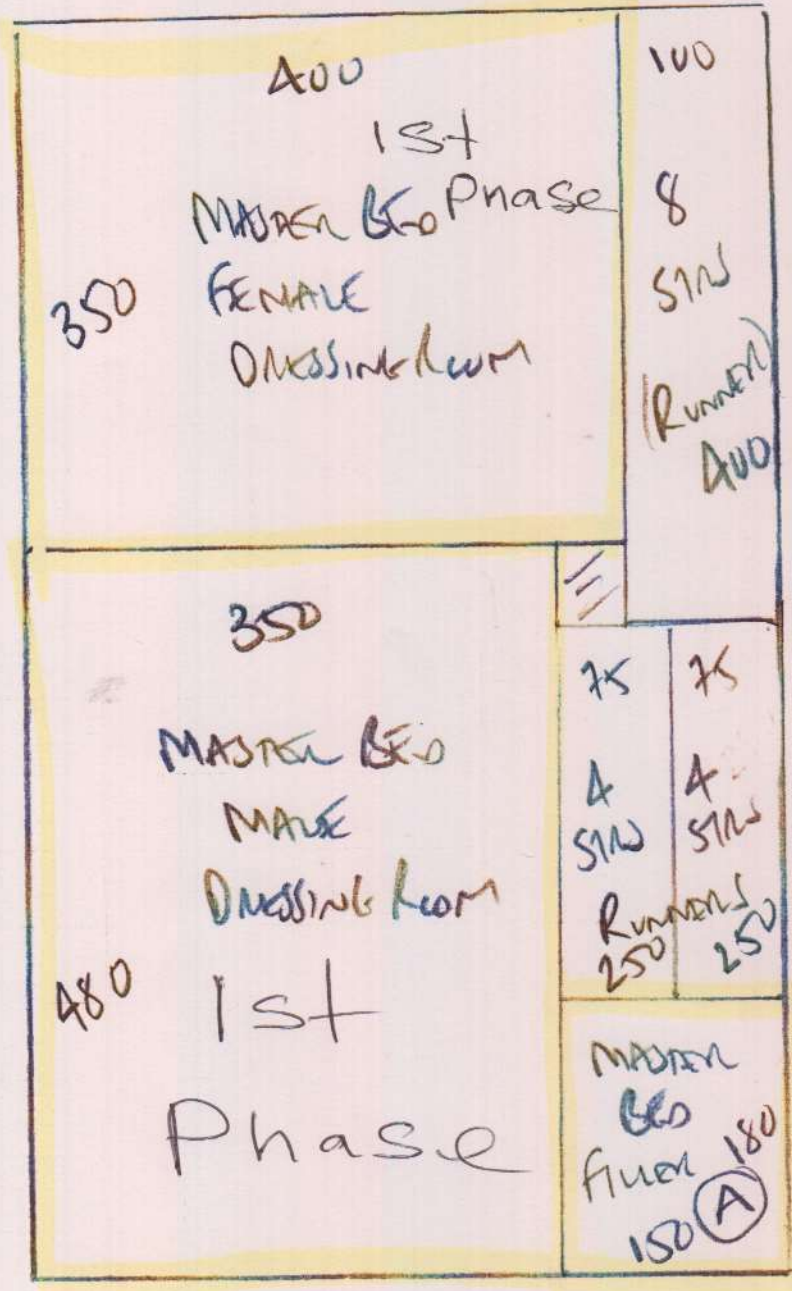 400
1st
Phase
MASTER BED
FEMALE
DRESSING ROOM
350
100
8
STRS
(RUNNER)
400
350
MASTER BED
MALE
DRESSING ROOM
480
1st
Phase
75
4
STRS
75
4
STRS
RUNNERS
250
250
MASTER
BED
FILLER
180
150
A